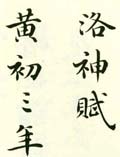 洛神賦
黄初三年